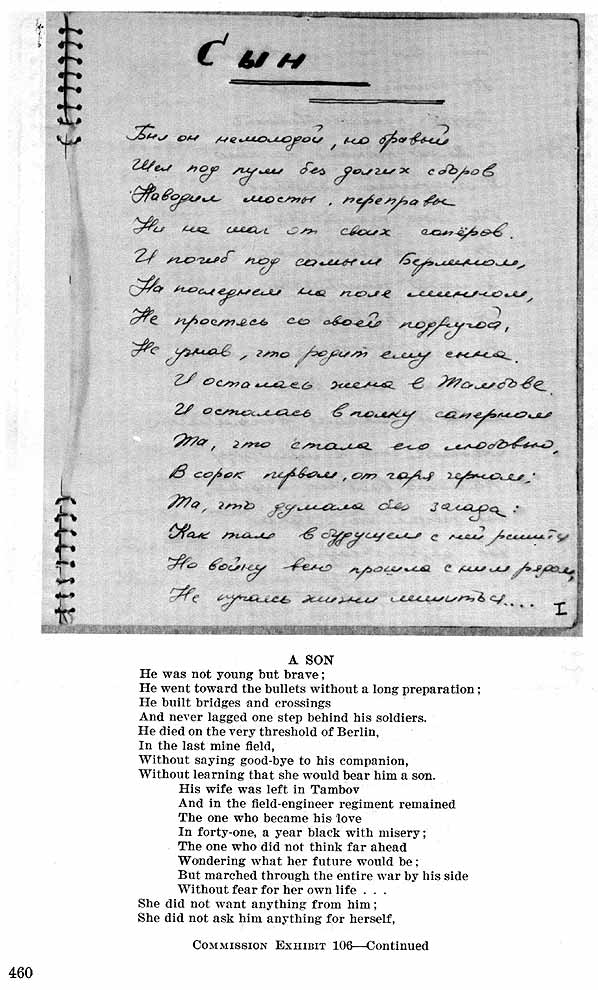 Сын
Был он немолодой, но бравый
Шел под пули без долгих сборов
Наводил мосты, переправы
Ни на шаг от своих сапёров.
И погиб под самым Берлином,
На последнем на поле минном,
Не простясь со своей подругой,
Не узнав, что родит ему сына.
И осталась жена в Тамбове
И осталась в полку саперном
Та, что стала его любовью,
В сорок первом, от горя черном;
Та, что думала без загада:
Как там в будущем с ней решится
Но войну всю прошла с ним рядом,
Не пугаясь жизни лишиться....
I
A SON
He was not young but brave;
He went toward the bullets without a long preparation;
He built bridges and crossings
And never lagged one step behind his soldiers.
He died on the very threshold of Berlin,
In the last mine field,
Without saying good-bye to his companion,
Without learning that she would bear him a son.
His wife was left in Tambov
And in the field-engineer regiment remained
The one who became his love
In forty-one, a year black with misery;
The one who did not think far ahead
Wondering what her future would be;
But marched through the entire war by his side
Without fear for her own life . . .
She did not want anything from him;
She did not ask him anything for herself,
COMMISSION EXHIBIT 106—Continued
460